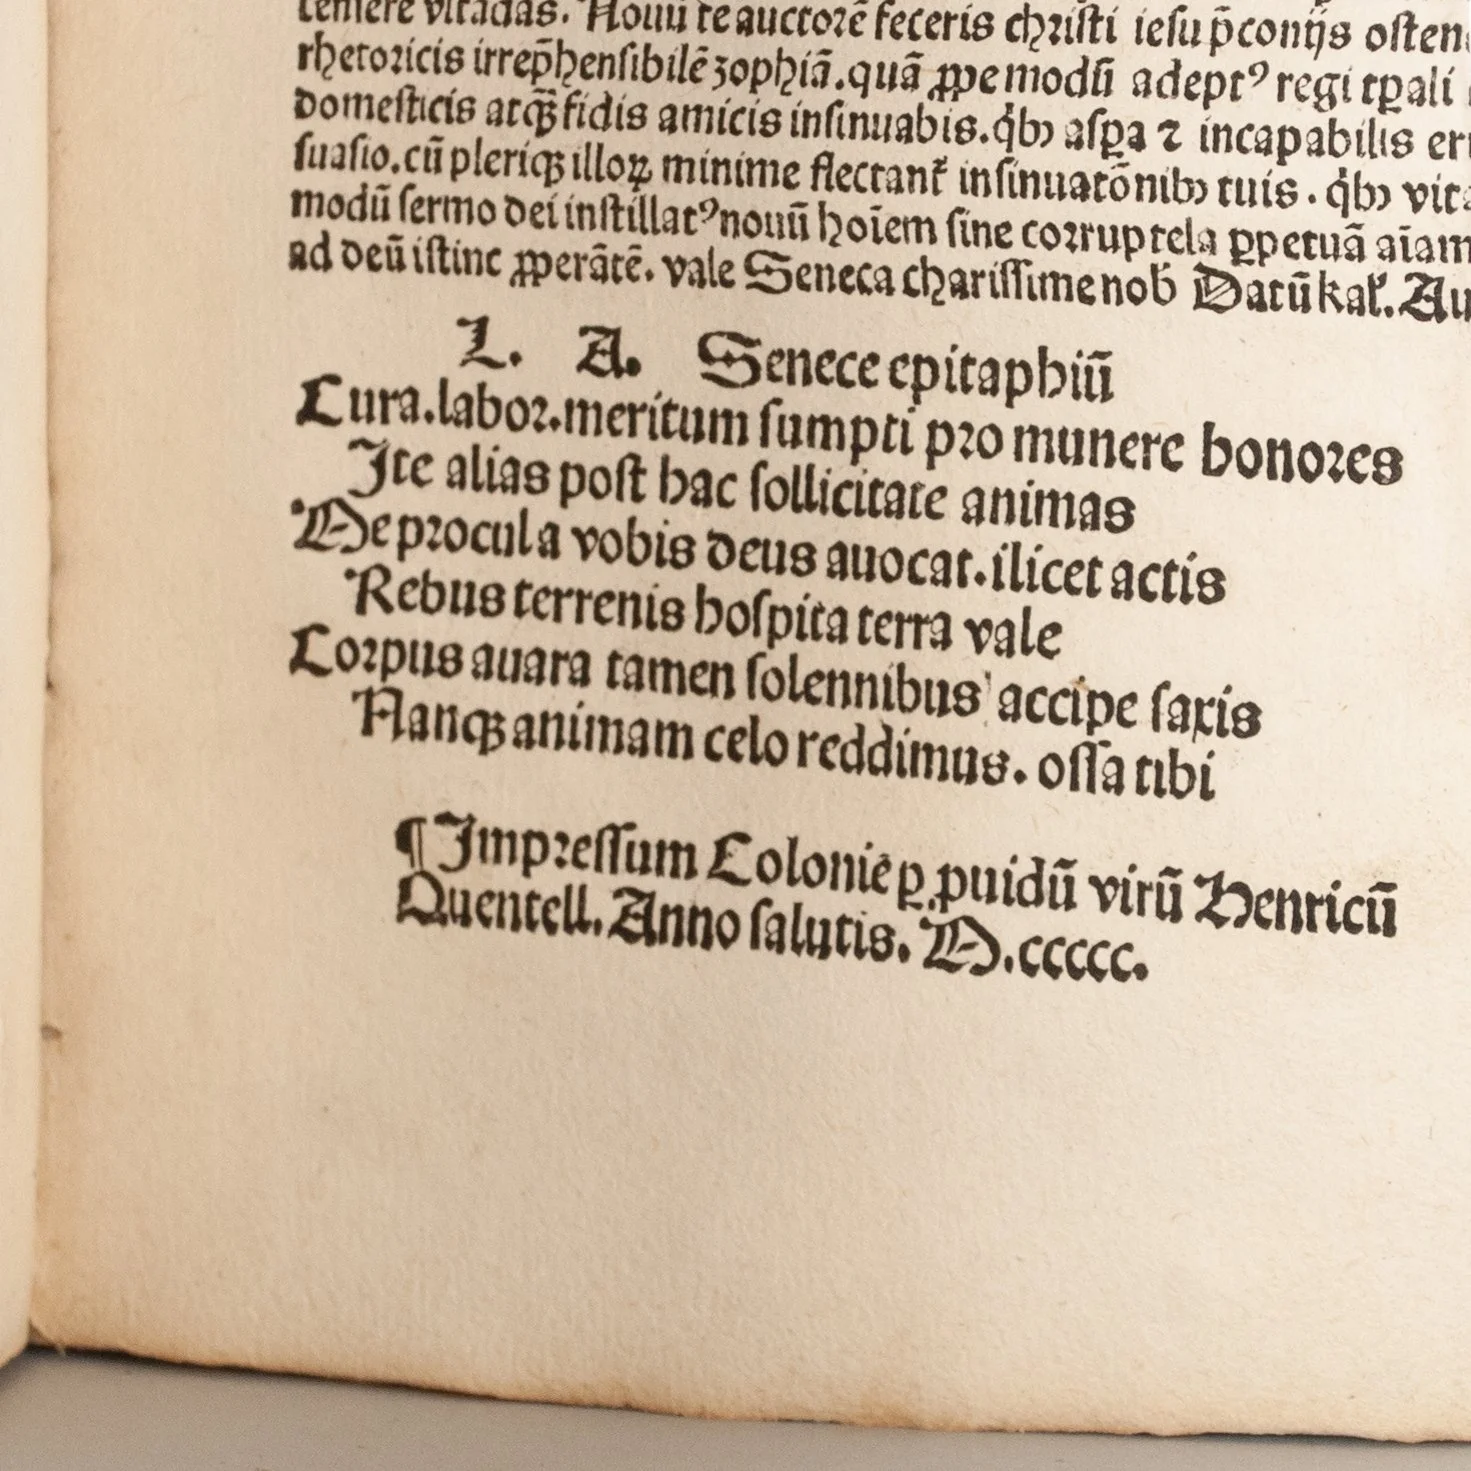 temere vitadas. Nouū te auctorē feceris christi iesu p̄conijs osten
rhetoricis irrep̄hensibilē zophiā. quā ꝓpemodū adeptꝰ regi tꝑali
domesticis atqꝫ fidis amicis insinuabis. q̇bꝫ asꝑa ⁊ incapabilis er
suasio. cū pleriqꝫ illoꝝ minime flectant᷑ insinuatōnibꝫ tuis. q̇bꝫ vit
modū sermo dei instillatꝰ nouū hoīem sine corruptela ꝑpetuā aīam
ad deū istinc ꝓperātē. vale Seneca charissime nob̄ Datū kał. Au
L. A. Senece epitaphiū
Cura. labor. meritum sumpti pro munere honores
Ite alias post hac sollicitate animas
Me procul a vobis deus auocat. ilicet actis
Rebus terrenis hospita terra vale
Corpus auara tamen solennibus accipe saxis
Nanqꝫ animam celo reddimus. ossa tibi
¶ Impressum Colonie ꝑ ꝓuidū virū Henricū
Quentell. Anno salutis. M.ccccc.